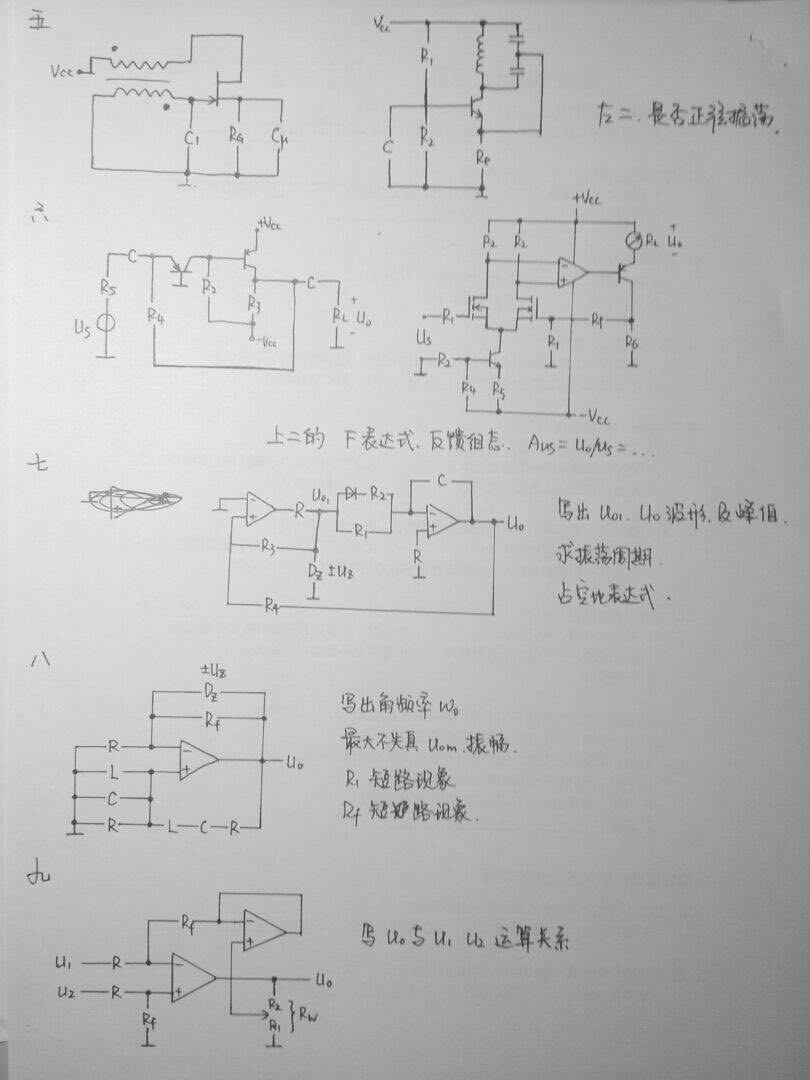 五
Vcc
C1
RG
Cμ
Vcc
R1
C
R2
Re
左二、是否正弦振荡.
六
C
RS
US
R4
R2
+Vcc
R3
-Vcc
C
RL
+
U0
-
+Vcc
R2
R2
-
+
RL
+
U0
-
R1
US
R1
Rf
R6
R2
R4
R5
-Vcc
上二的 F表达式、反馈组态. Aus = U0/US = ...
七
-
+
R
U01
R2
R1
C
-
+
U0
R3
DZ ±UZ
R
R4
写出 U01、U0 波形、及峰值.
求振荡周期.
占空比表达式.
八
±UZ
DZ
Rf
R
-
+
U0
L
C
R
L
C
R
写出角频率 W0
最大不失真 Uom、振幅.
R1 短路现象
Rf 短路现象.
九
Rf
-
+
U1
R
-
+
U0
U2
R
Rf
R2
R1
} RW
写 U0 与 U1 U2 运算关系